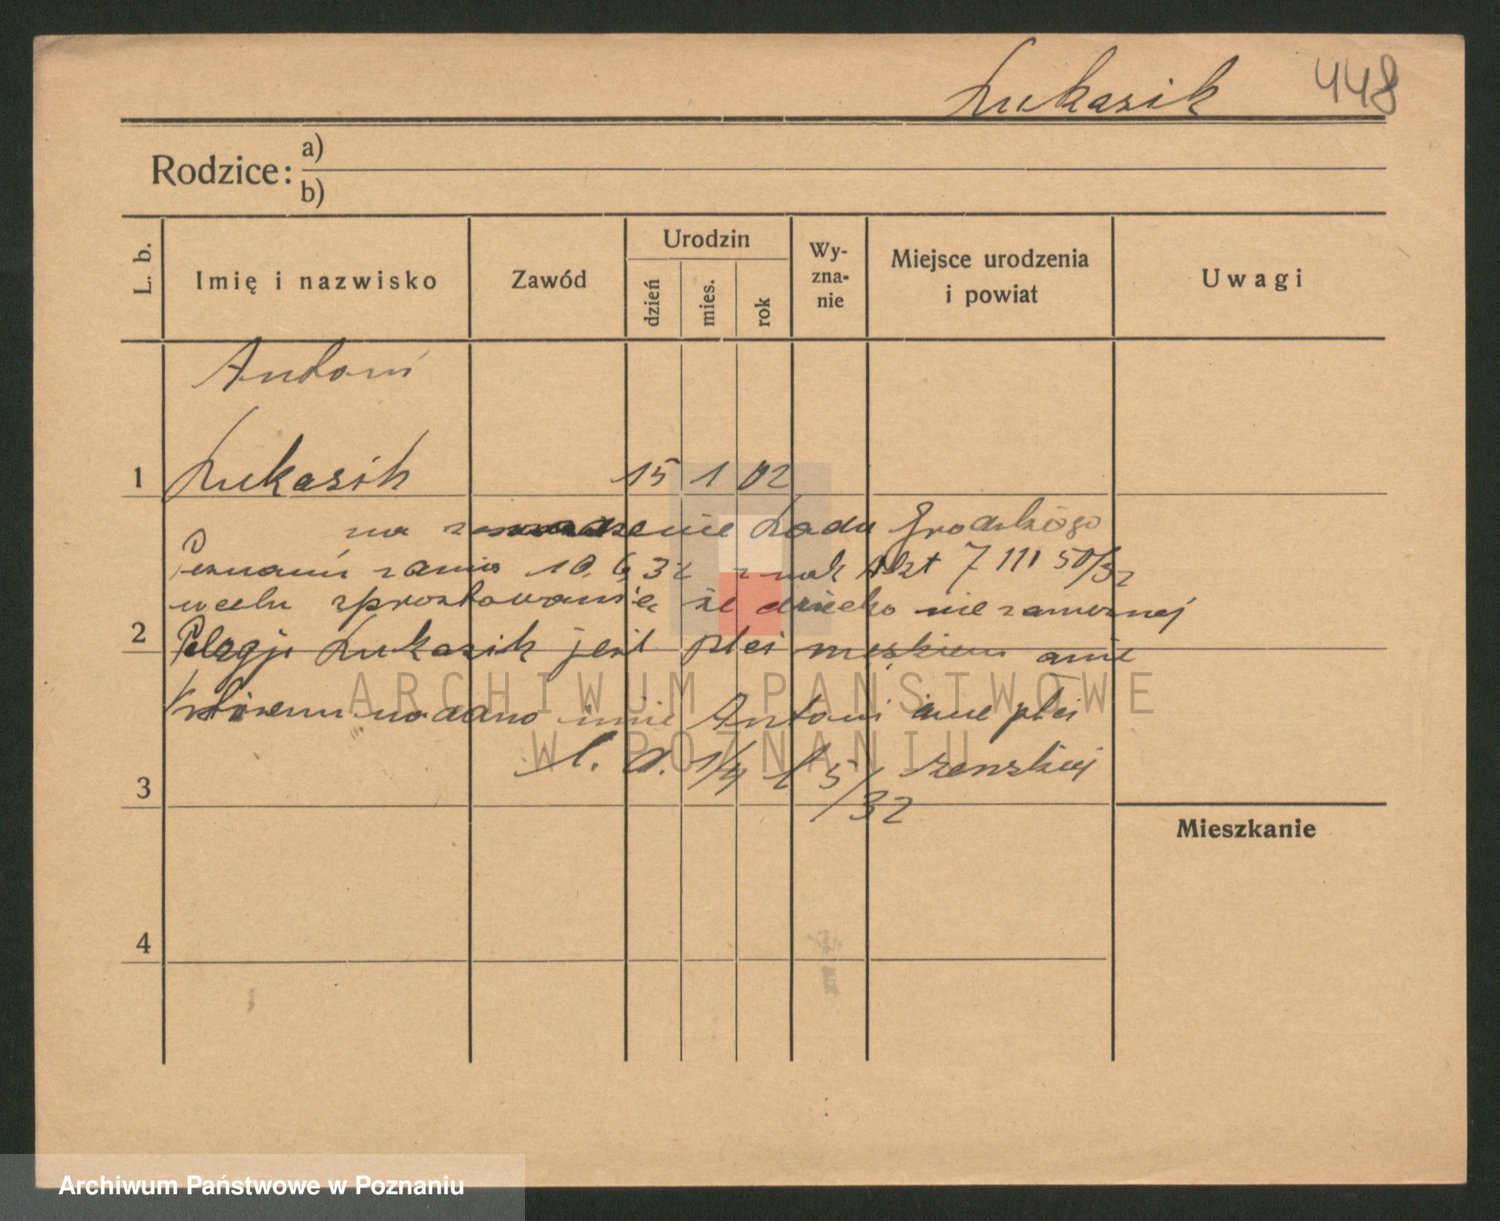 Łukasik 448
Rodzice: a)
b)
L. b. Imię i nazwisko Zawód Urodzin dzień mies. rok Wy-zna-nie Miejsce urodzenia i powiat Uwagi
Antoni
1 Łukasik 15 1 02
na Sądu Grodzkiego
Poznaniu z dnia 10. 6. 32 znak Akt 7 III 50/32
w celu sprostowania że dziecko niezamężnej
2 Pelagji Łukasik jest płci męskiem a nie
któremu nadano imię Antoni a nie płci
żeńskiej
/32
3
Mieszkanie
4
ARCHIWUM PAŃSTWOWE
W POZNANIU
Archiwum Państwowe w Poznaniu